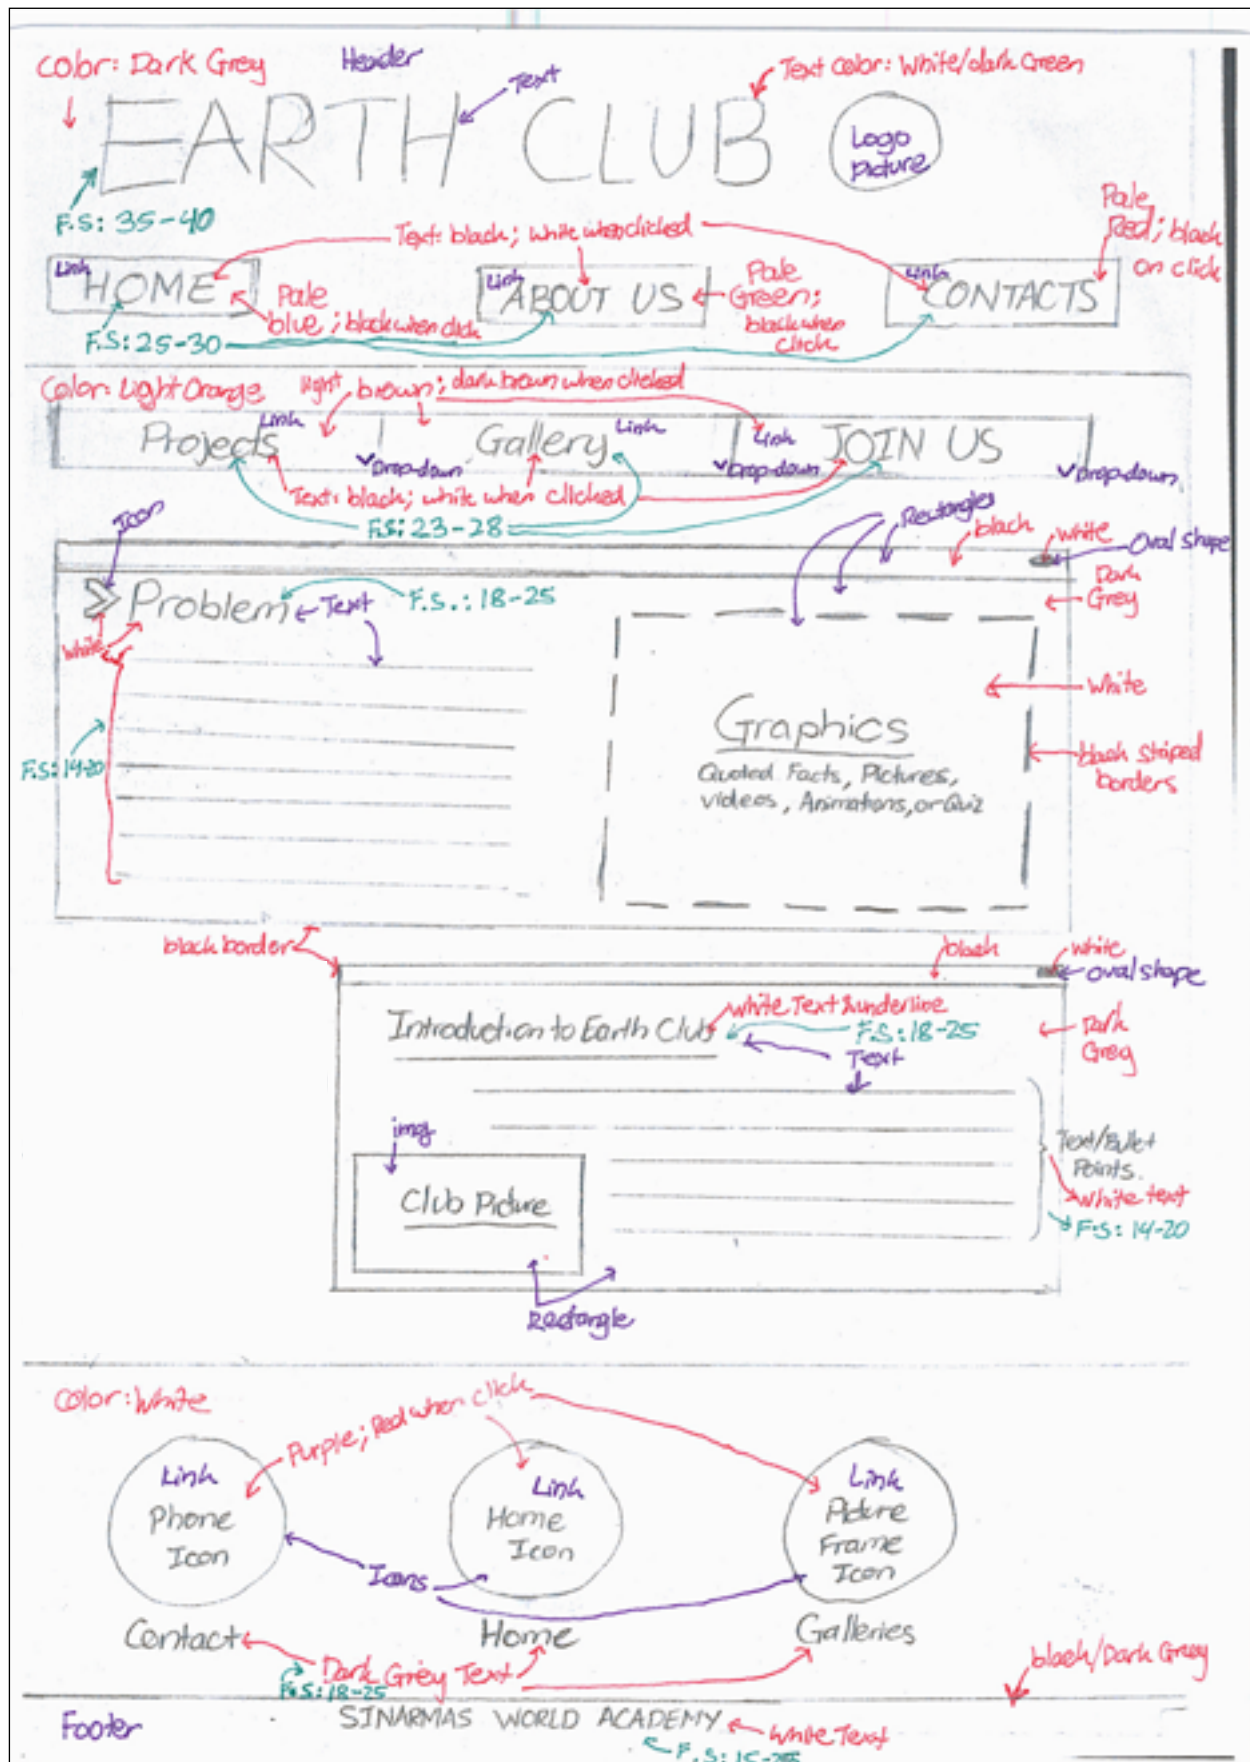 color: Dark Grey
Header
Text
Text Color: White/dark Green
EARTH CLUB
Logo
picture
F.S: 35-40
Text: black; white when clicked
Pale
Red; black
on click
Link
HOME
Link
ABOUT US
Link
CONTACTS
Pale
blue; black when click
Pale
Green;
black when
click
F.S: 25-30
Color: Light Orange
light brown; dark brown when clicked
Projects
Link
Gallery
Link
Link
JOIN US
Drop-down
Drop-down
Drop-down
Text: black; white when clicked
F.S: 23-28
Icon
Rectangles
black
white
Oval shape
Problem
Text
F.S.: 18-25
Dark
Grey
white
White
F.S: 14-20
Graphics
Quoted Facts, Pictures,
videos, Animations, or Quiz
black striped
borders
black border
black
white
oval shape
Introduction to Earth Club
White Text & underline
F.S: 18-25
Text
Dark
Grey
img
Club Picture
Text/Bullet
Points.
White text
F.S: 14-20
Rectangle
Color: White
Purple; Red when click
Link
Phone
Icon
Link
Home
Icon
Link
Picture
Frame
Icon
Icons
Contact
Home
Galleries
Dark Grey Text
F.S: 18-25
black/Dark Grey
Footer
SINARMAS WORLD ACADEMY
White Text